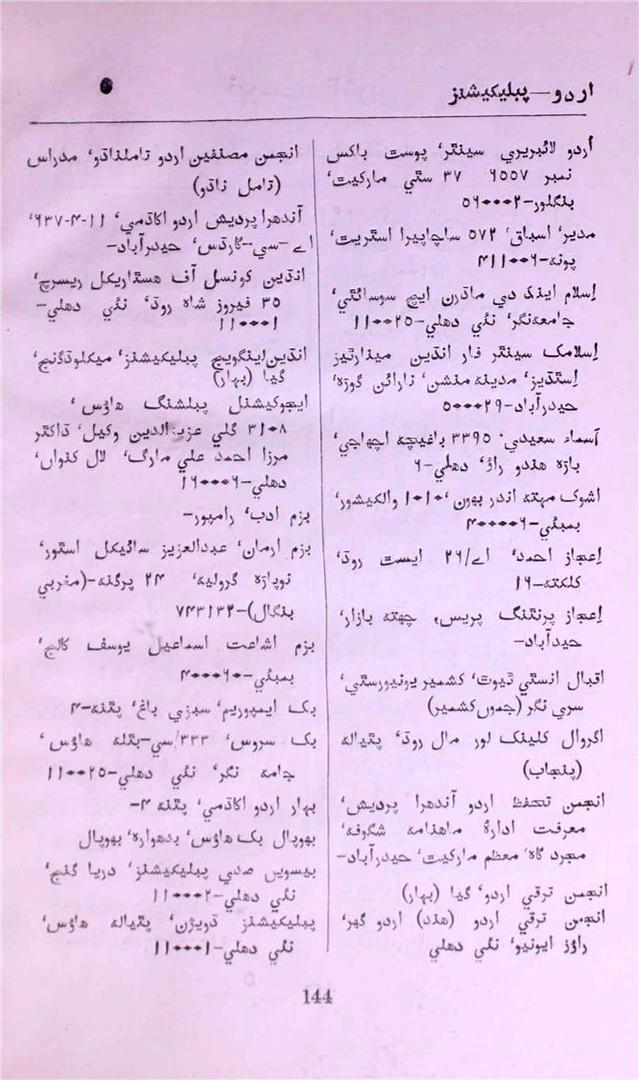 اردو—پبلیکیشنز
اُردو لائبریری سینٹر، پوسٹ باکس
نمبر ۶۵۵۷ ۳۷ سٹی مارکیٹ،
بنگلور-۵۶۰۰۰۲
مدیر، اسباق، ۵۷۲ ساچاپیرا اسٹریٹ،
پونہ-۴۱۱۰۰۶
اِسلام اینڈ دی ماڈرن ایج سوسائٹی،
جامعہ نگر، نئی دہلی-۱۱۰۰۲۵
اِسلامک سینٹر فار انڈین مینارٹیز
اِسٹڈیز، مدینہ منشن، نارائن گوڑہ،
حیدرآباد-۵۰۰۰۲۹
آسماء سعیدی، ۳۳۹۵ باغیچہ اچھاجی،
باڑہ ہندو راؤ، دہلی-۶
اشوک مہتہ اندر بھون، ۱۰۱۰ والکیشور،
بمبئی-۴۰۰۰۰۶
اِعجاز احمد، اے/۲۶ ایسٹ روڈ،
کلکتہ-۱۶
اِعجاز پرنٹنگ پریس، چھتہ بازار،
حیدآباد-
اقبال انسٹی ٹیوٹ، کشمیر یونیورسٹی،
سری نگر (جموں کشمیر)
اگروال کلینک لور مال روڈ، پٹیالہ
(پنجاب)
انجمن تحفظ اردو آندھرا پردیش،
معرفت ادارۂ ماہنامہ شگوفہ،
مجرد گاہ، معظم مارکیٹ، حیدرآباد-
انجمن ترقی اردو، گیا (بہار)
انجمن ترقی اردو (ہند) اردو گھر،
راؤز ایونیو، نئی دہلی
انجمن مصنفین اردو تاملناڈو، مدراس
(تامل ناڈو)
آندھرا پردیش اردو اکاڈمی، ۱۱-۴-۶۳۷،
اے-سی-گارڈس، حیدرآباد-
انڈین کونسل آف ہسٹاریکل ریسرچ،
۳۵ فیروز شاہ روڈ، نئی دہلی-
۱۱۰۰۰۱
انڈین اینگویج پبلیکیشنز، میکلوڈگنج،
گیا (بہار)
ایجوکیشنل پبلشنگ ہاؤس،
۳۱۰۸ گلی عزیزالدین وکیل، ڈاکٹر
مرزا احمد علی مارگ، لال کنواں،
دہلی-۱۶۰۰۰۶
بزم ادب، رامپور-
بزم ارمان، عبدالعزیز سائیکل اسٹور،
نوپاڑہ گرولیہ، ۲۴ پرگنہ-(مغربی
بنگال)-۷۴۳۱۳۲
بزم اشاعت اسماعیل یوسف کالج،
بمبئی-۴۰۰۰۶۰
بک ایمپوریم، سبزی باغ، پٹنہ-۴
بک سروس، ۳۳۳/سی-بٹلہ ہاؤس،
جامہ نگر، نئی دہلی-۱۱۰۰۲۵
بہار اردو اکاڈمی، پٹنہ ۴-
بھوپال بک ہاؤس، بدھوارہ، بھوپال
بیسویں صدی پبلیکیشنز، دریا گنج،
نئی دہلی-۱۱۰۰۰۲
پبلیکیشنز ڈویژن، پٹیالہ ہاؤس،
نئی دہلی-۱۱۰۰۰۱
144